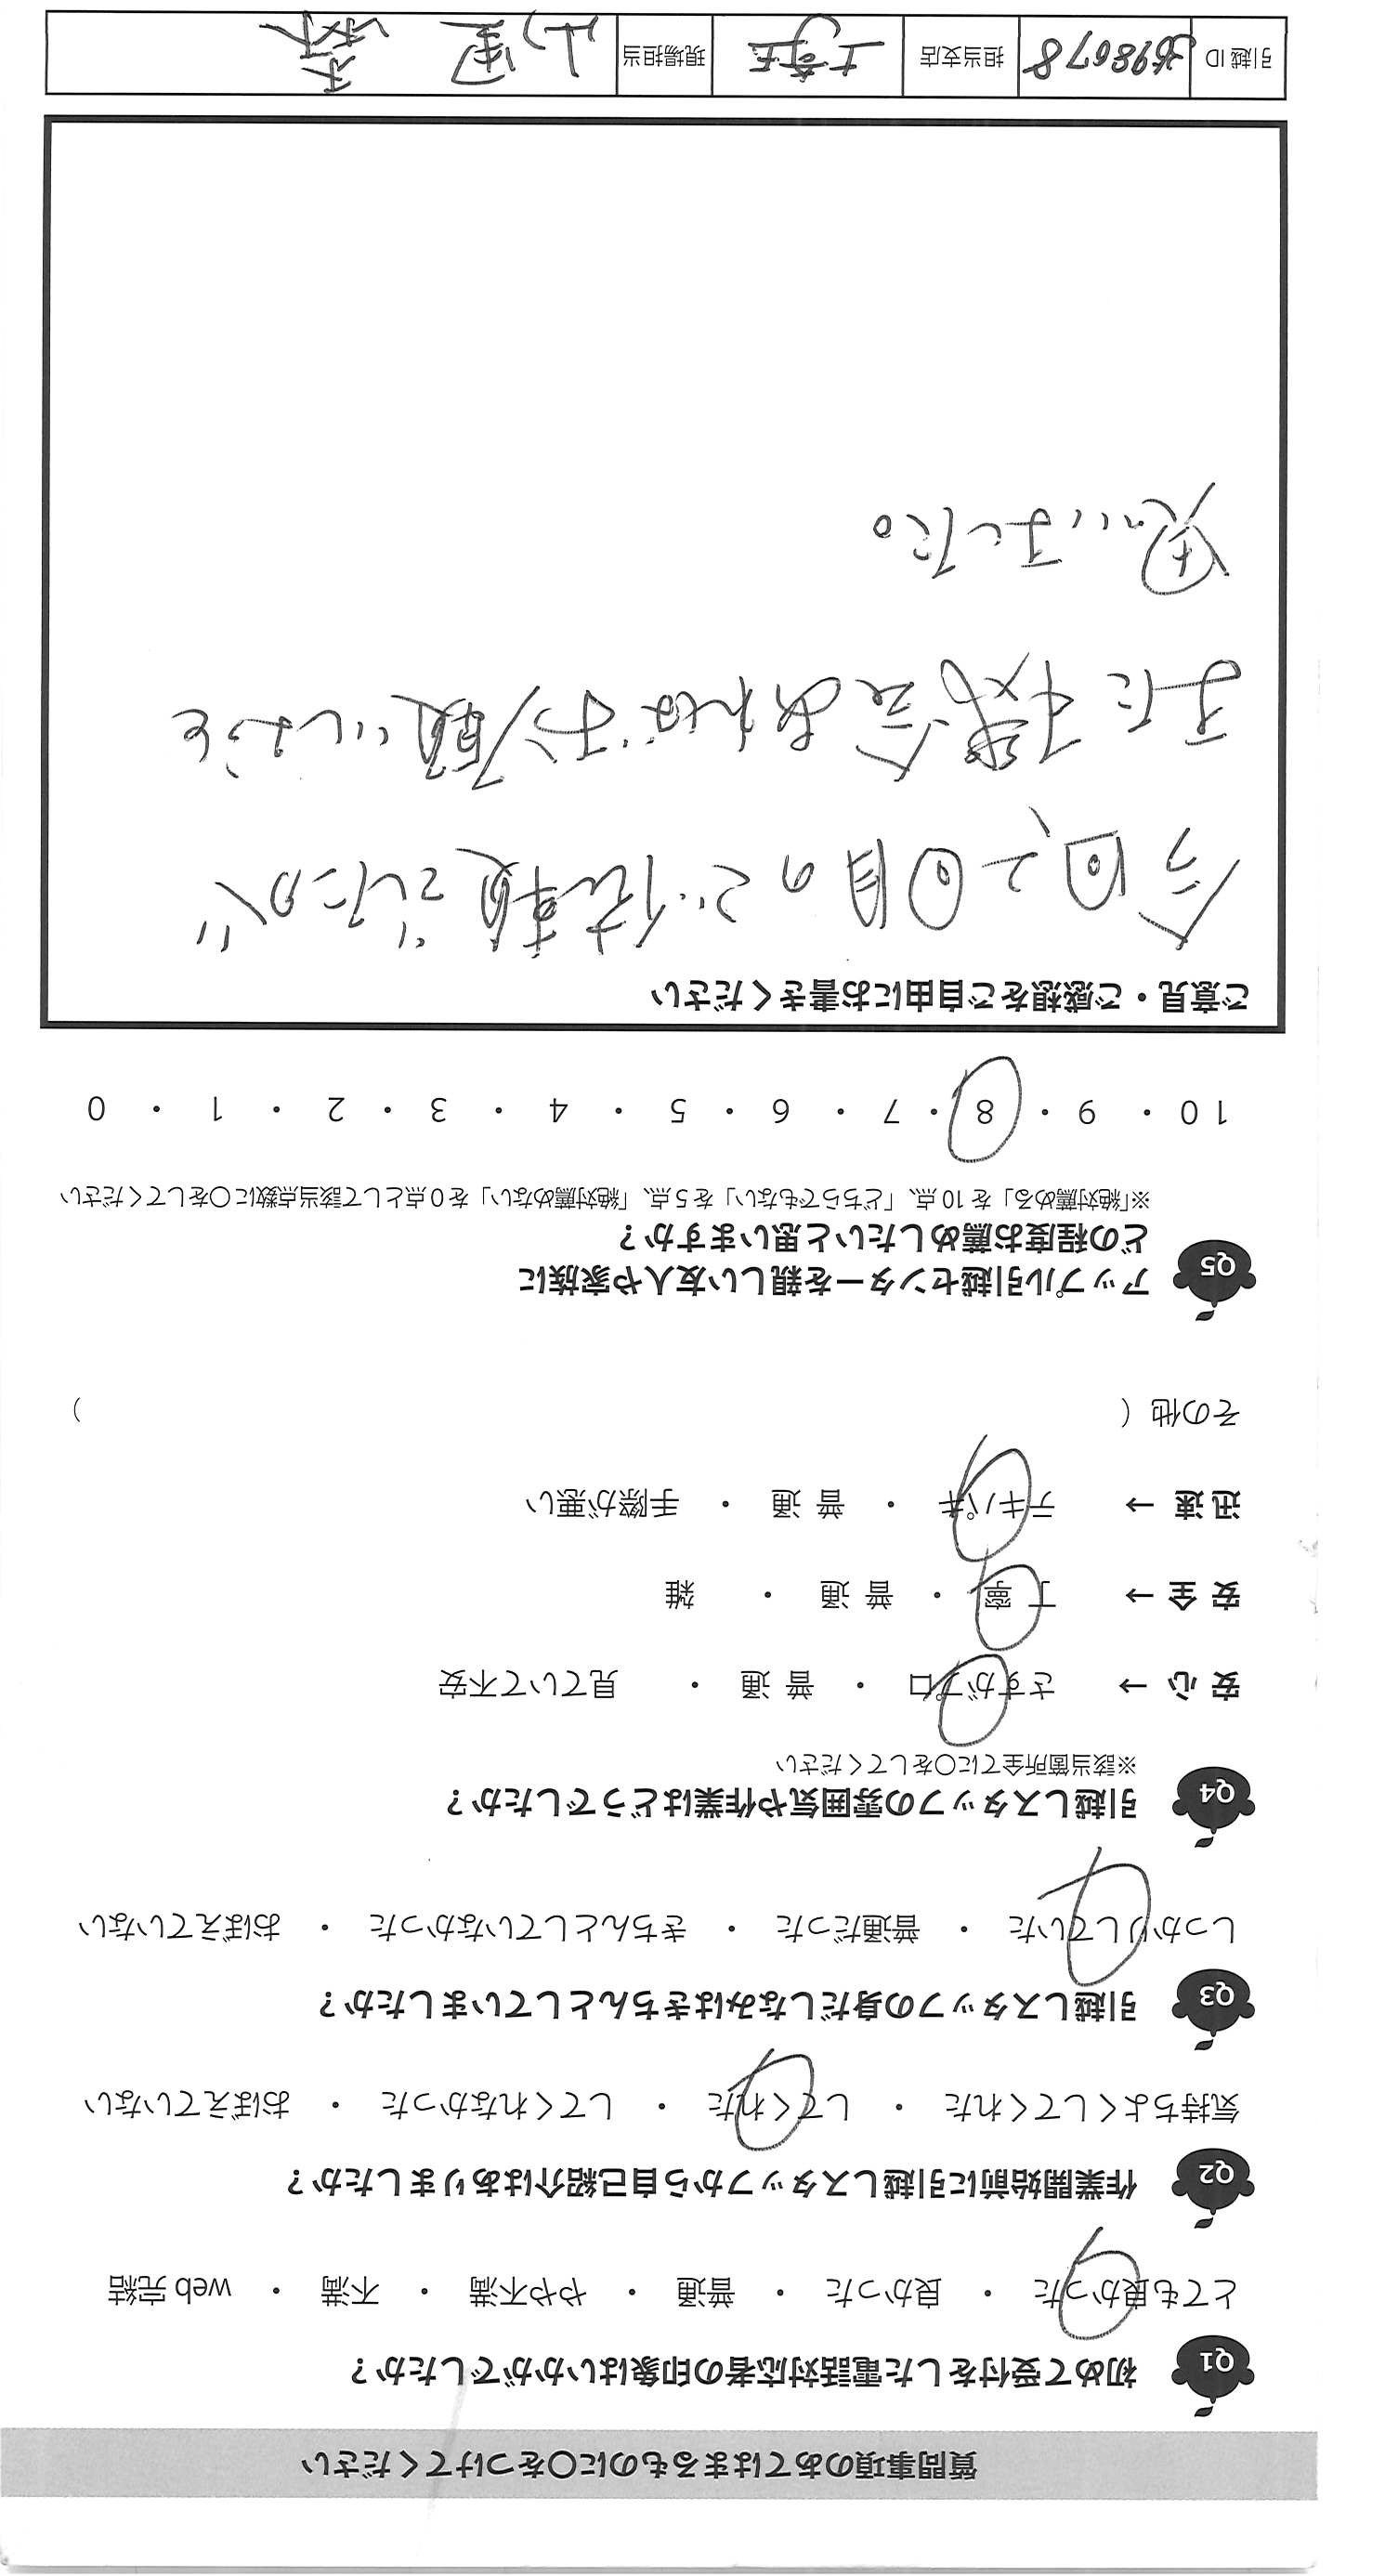 質問事項のあてはまるものに○をつけてください
Q1 初めて受付をした電話対応者の印象はいかがでしたか？
とても良かった ・ 良かった ・ 普通 ・ やや不満 ・ 不満 ・ web 完結
Q2 作業開始前に引越しスタッフから自己紹介はありましたか？
気持ちよくしてくれた ・ してくれた ・ してくれなかった ・ おぼえていない
Q3 引越しスタッフの身だしなみはきちんとしていましたか？
しっかりしていた ・ 普通だった ・ きちんとしていなかった ・ おぼえていない
Q4 引越しスタッフの雰囲気や作業はどうでしたか？
※該当箇所全てに○をしてください
安 心 → さすがプロ ・ 普 通 ・ 見ていて不安
安 全 → 丁 寧 ・ 普 通 ・ 雑
迅 速 → テキパキ ・ 普 通 ・ 手際が悪い
その他（ ）
Q5 アップル引越センターを親しい友人や家族に
どの程度お薦めしたいと思いますか？
※「絶対薦める」を 10 点、「どちらでもない」を 5 点、「絶対薦めない」を 0 点として該当点数に○をしてください
10 ・ 9 ・ 8 ・ 7 ・ 6 ・ 5 ・ 4 ・ 3 ・ 2 ・ 1 ・ 0
ご意見・ご感想をご自由にお書きください
今回、2回目のご依頼でしたが
また機会あればお願いしようと
思いました。
引越 ID 3698678 担当支店 埼玉 現場担当 山里 森